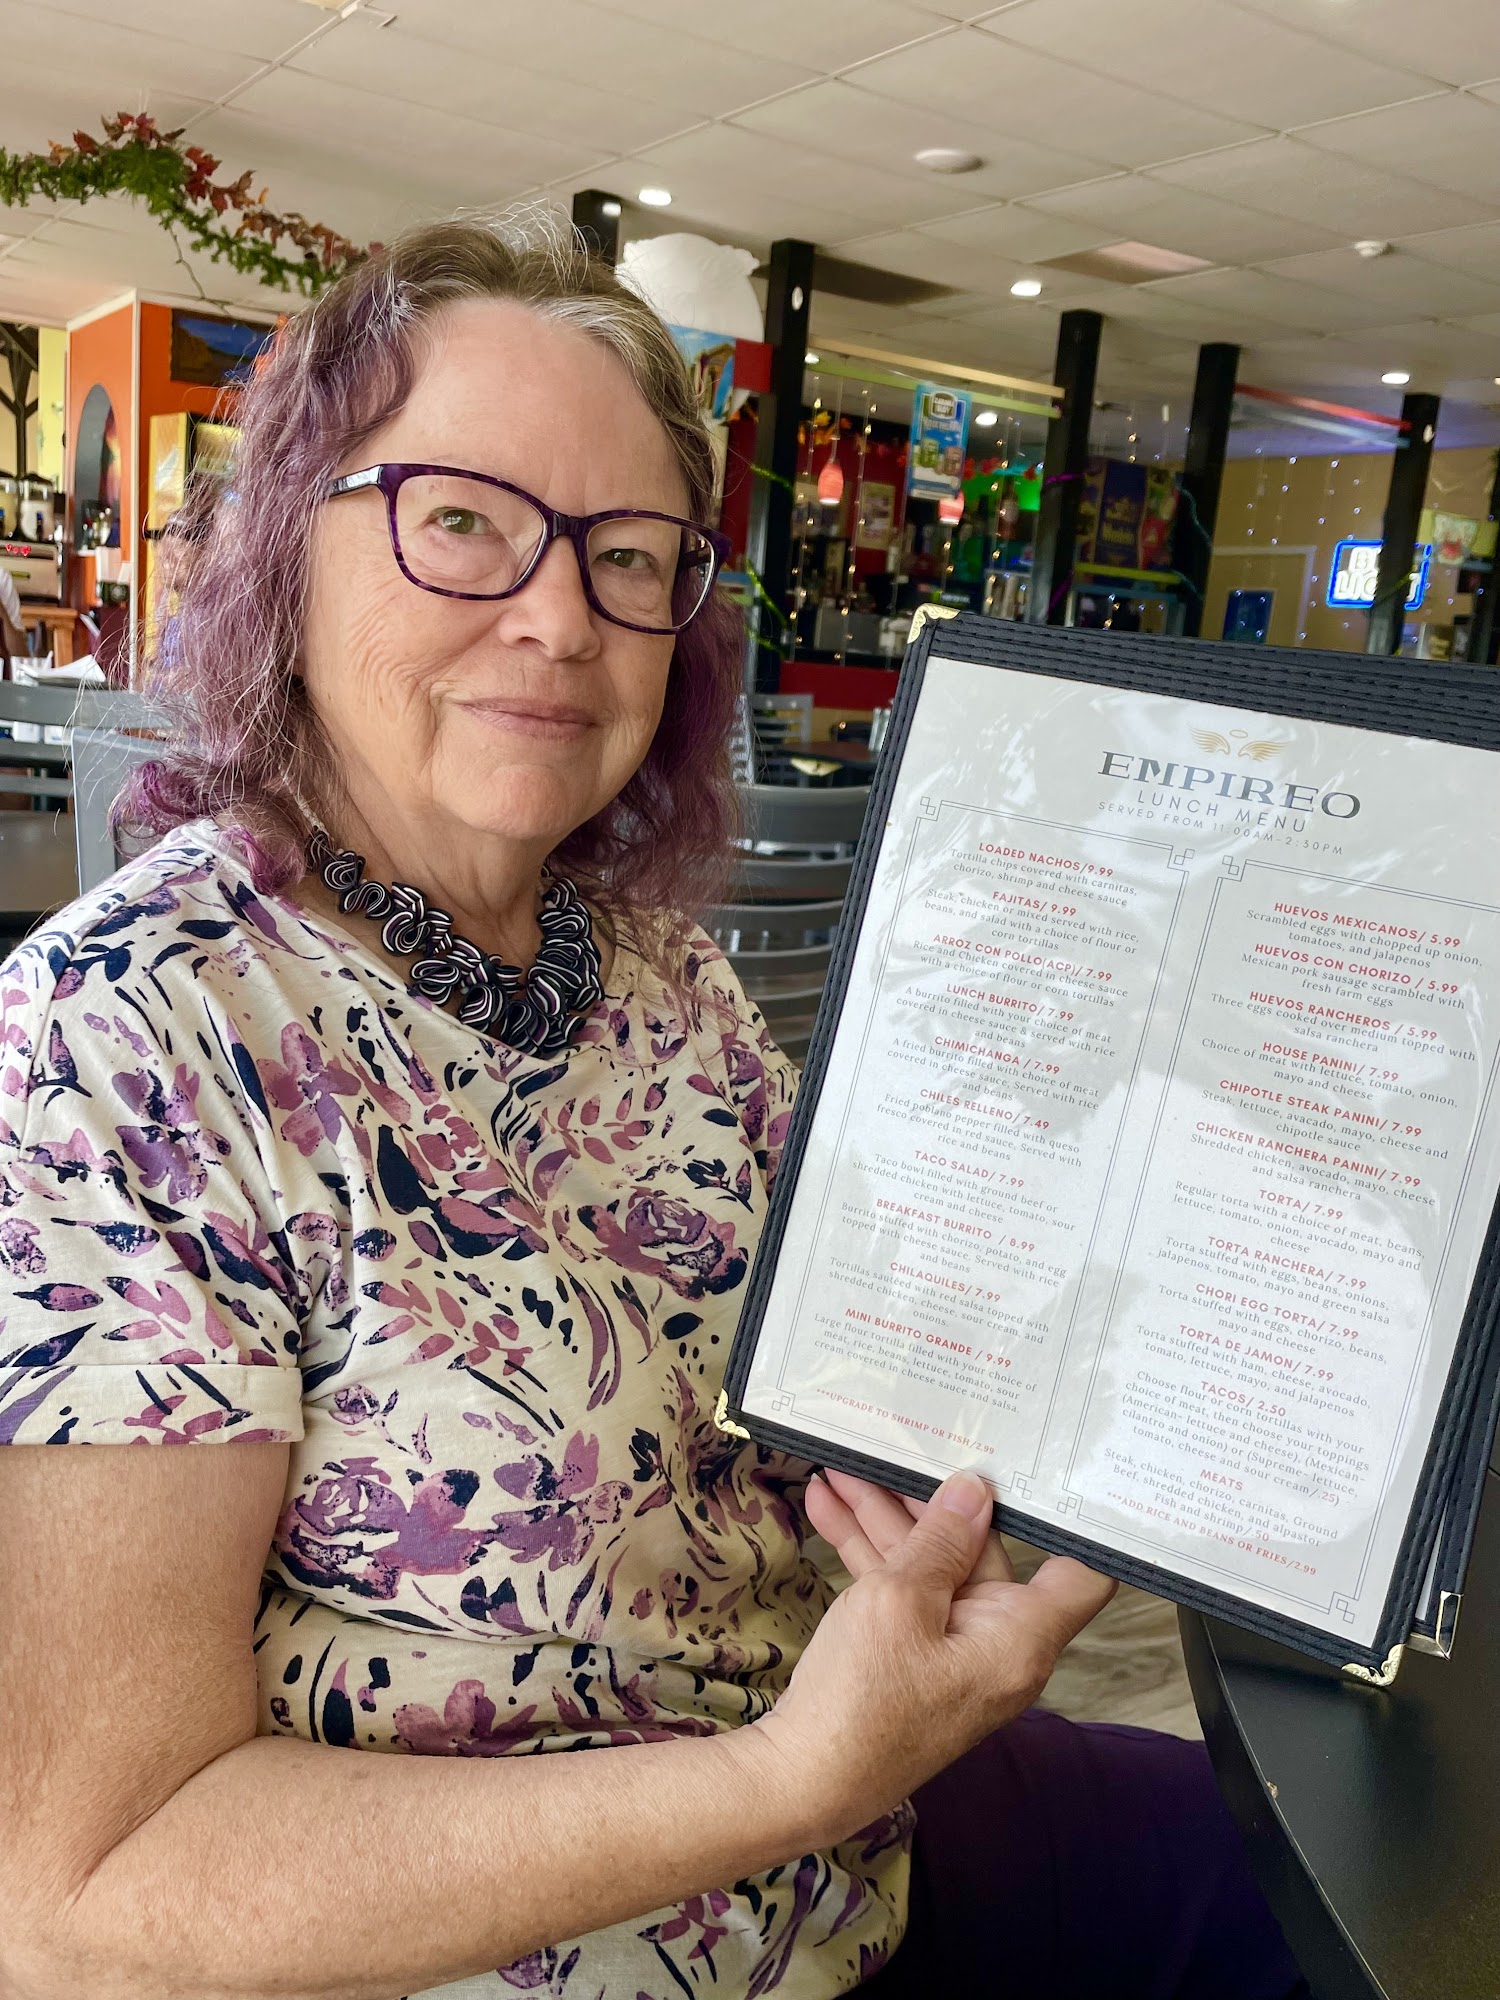 EMPIREO
LUNCH MENU
SERVED FROM 11:00AM-2:30PM
LOADED NACHOS/9.99
Tortilla chips covered with carnitas,
chorizo, shrimp and cheese sauce
FAJITAS/ 9.99
Steak, chicken or mixed served with rice,
beans, and salad with a choice of flour or
corn tortillas
ARROZ CON POLLO(ACP)/ 7.99
Rice and Chicken covered in cheese sauce
with a choice of flour or corn tortillas
LUNCH BURRITO/ 7.99
A burrito filled with your choice of meat
covered in cheese sauce & served with rice
and beans
CHIMICHANGA / 7.99
A fried burrito filled with choice of meat
covered in cheese sauce, Served with rice
and beans
CHILES RELLENO/ 7.49
Fried poblano pepper filled with queso
fresco covered in red sauce. Served with
rice and beans
TACO SALAD/ 7.99
Taco bowl filled with ground beef or
shredded chicken with lettuce, tomato, sour
cream and cheese
BREAKFAST BURRITO / 8.99
Burrito stuffed with chorizo, potato, and egg
topped with cheese sauce. Served with rice
and beans
CHILAQUILES/ 7.99
Tortillas sautéed with red salsa topped with
shredded chicken, cheese, sour cream, and
onions.
MINI BURRITO GRANDE / 9.99
Large flour tortilla filled with your choice of
meat, rice, beans, lettuce, tomato, sour
cream covered in cheese sauce and salsa.
***UPGRADE TO SHRIMP OR FISH/2.99
HUEVOS MEXICANOS/ 5.99
Scrambled eggs with chopped up onion,
tomatoes, and jalapenos
HUEVOS CON CHORIZO / 5.99
Mexican pork sausage scrambled with
fresh farm eggs
HUEVOS RANCHEROS / 5.99
Three eggs cooked over medium topped with
salsa ranchera
HOUSE PANINI/ 7.99
Choice of meat with lettuce, tomato, onion,
mayo and cheese
CHIPOTLE STEAK PANINI/ 7.99
Steak, lettuce, avacado, mayo, cheese and
chipotle sauce
CHICKEN RANCHERA PANINI/ 7.99
Shredded chicken, avocado, mayo, cheese
and salsa ranchera
TORTA/ 7.99
Regular torta with a choice of meat, beans,
lettuce, tomato, onion, avocado, mayo and
cheese
TORTA RANCHERA/ 7.99
Torta stuffed with eggs, beans, onions,
jalapenos, tomato, mayo and green salsa
CHORI EGG TORTA/ 7.99
Torta stuffed with eggs, chorizo, beans,
mayo and cheese
TORTA DE JAMON/ 7.99
Torta stuffed with ham, cheese, avocado,
tomato, lettuce, mayo, and jalapenos
TACOS/ 2.50
Choose flour or corn tortillas with your
choice of meat, then choose your toppings
(American- lettuce and cheese), (Mexican-
cilantro and onion) or (Supreme- lettuce,
tomato, cheese and sour cream/.25)
MEATS
Steak, chicken, chorizo, carnitas, Ground
Beef, shredded chicken, and alpastor
Fish and shrimp/.50
***ADD RICE AND BEANS OR FRIES/2.99
LIGHT